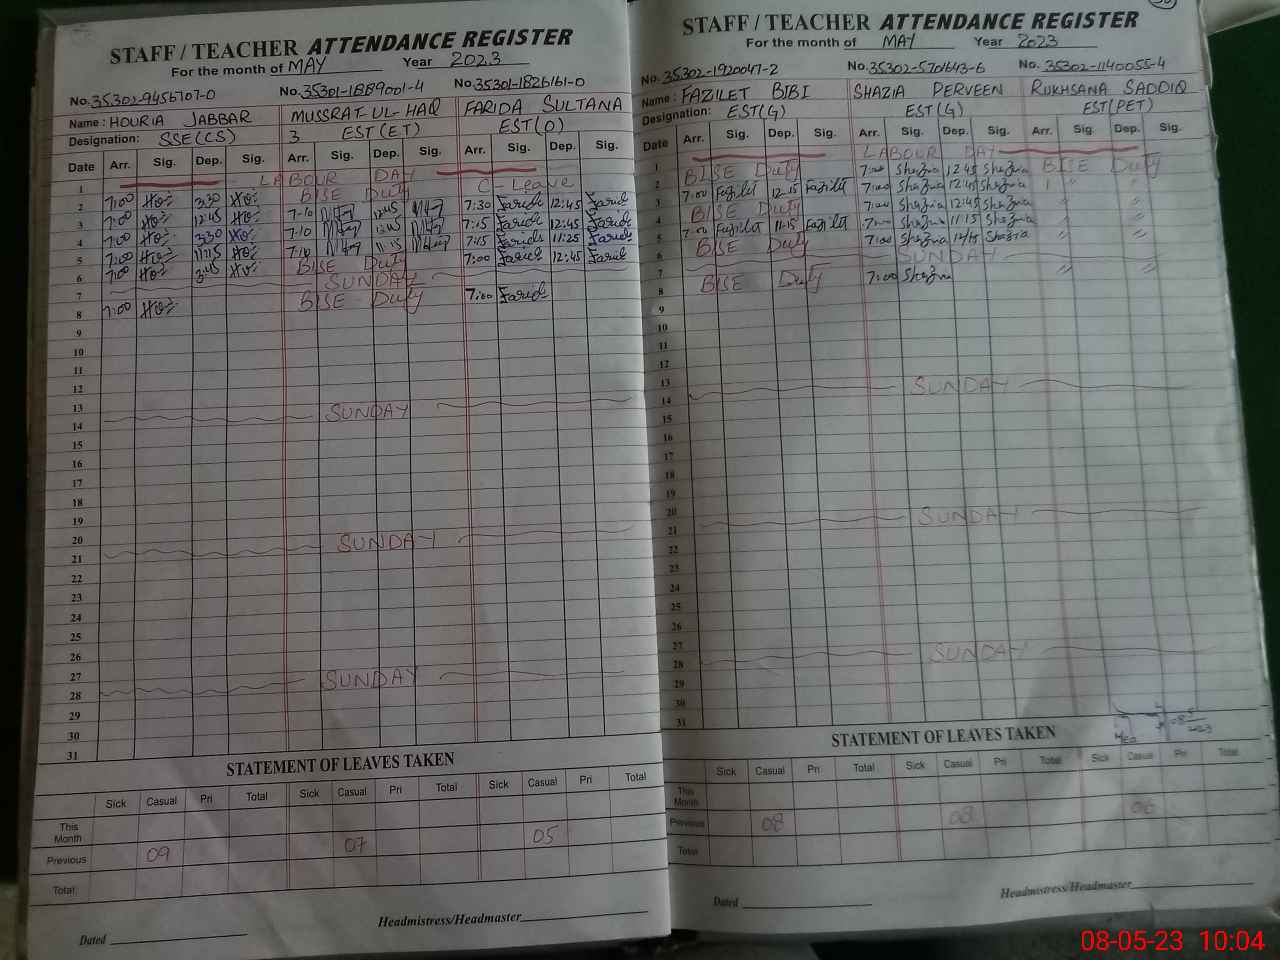 STAFF / TEACHER ATTENDANCE REGISTER
For the month of MAY Year 2023
No. 35302-9456707-0 No. 35301-1889001-4 No. 35301-1826161-0
Name: HOURIA JABBAR MUSSRAT-UL-HAQ FARIDA SULTANA
Designation: SSE(CS) 3 EST(ET) EST(O)
Date Arr. Sig. Dep. Sig. Arr. Sig. Dep. Sig. Arr. Sig. Dep. Sig.
1 LABOUR DAY
2 7:00 3:30 BISE Duty C-Leave
3 7:00 12:45 7-10 12:45 7:30 Farida 12:45 Farida
4 7:00 3:30 7:10 12:45 7:15 Farida 12:45 Farida
5 7:00 11:15 7:10 11:15 7:45 Farida 11:25 Farida
6 7:00 3:45 BISE Duty 7:00 Farida 12:45 Farida
7 SUNDAY
8 7:00 BISE Duty 7:00 Farida
9
10
11
12
13
14 SUNDAY
15
16
17
18
19
20
21 SUNDAY
22
23
24
25
26
27
28 SUNDAY
29
30
31
STATEMENT OF LEAVES TAKEN
Sick Casual Pri Total Sick Casual Pri Total Sick Casual Pri Total
This Month
Previous 09 07 05
Total
Headmistress/Headmaster
Dated
STAFF / TEACHER ATTENDANCE REGISTER
For the month of MAY Year 2023
No. 35302-1920047-2 No. 35302-5701643-6 No. 35302-1140055-4
Name: FAZILET BIBI SHAZIA PERVEEN RUKHSANA SADDIQ
Designation: EST(G) EST(G) EST(PET)
Date Arr. Sig. Dep. Sig. Arr. Sig. Dep. Sig. Arr. Sig. Dep. Sig.
1 LABOUR DAY
2 BISE Duty 7:00 Shazia 12:45 Shazia BISE Duty
3 7:00 Fazilet 12:15 Fazilet 7:00 Shazia 12:45 Shazia 〃 〃
4 BISE Duty 7:00 Shazia 12:45 Shazia 〃 〃
5 7:00 Fazilet 11:15 Fazilet 7:00 Shazia 11:15 Shazia 〃 〃
6 BISE Duty 7:00 Shazia Shazia 〃 〃
7 SUNDAY
8 BISE Duty 7:00 Shazia 〃 〃
9
10
11
12
13
14 SUNDAY
15
16
17
18
19
20
21 SUNDAY
22
23
24
25
26
27
28 SUNDAY
29
30
31
STATEMENT OF LEAVES TAKEN
Sick Casual Pri Total Sick Casual Pri Total Sick Casual Pri Total
This Month
Previous 08 08 06
Total
Headmistress/Headmaster
Dated
08-05-23 10:04